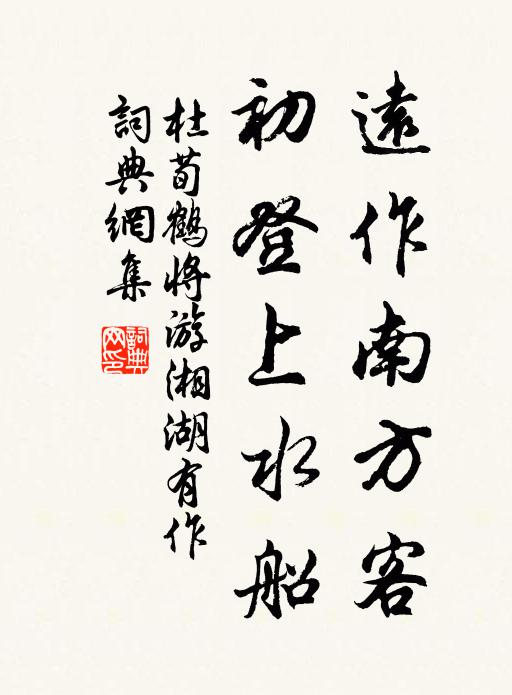 遠作南方客
初登上水船
杜荀鶴將游湘湖有作
詞典網集
詞典網印